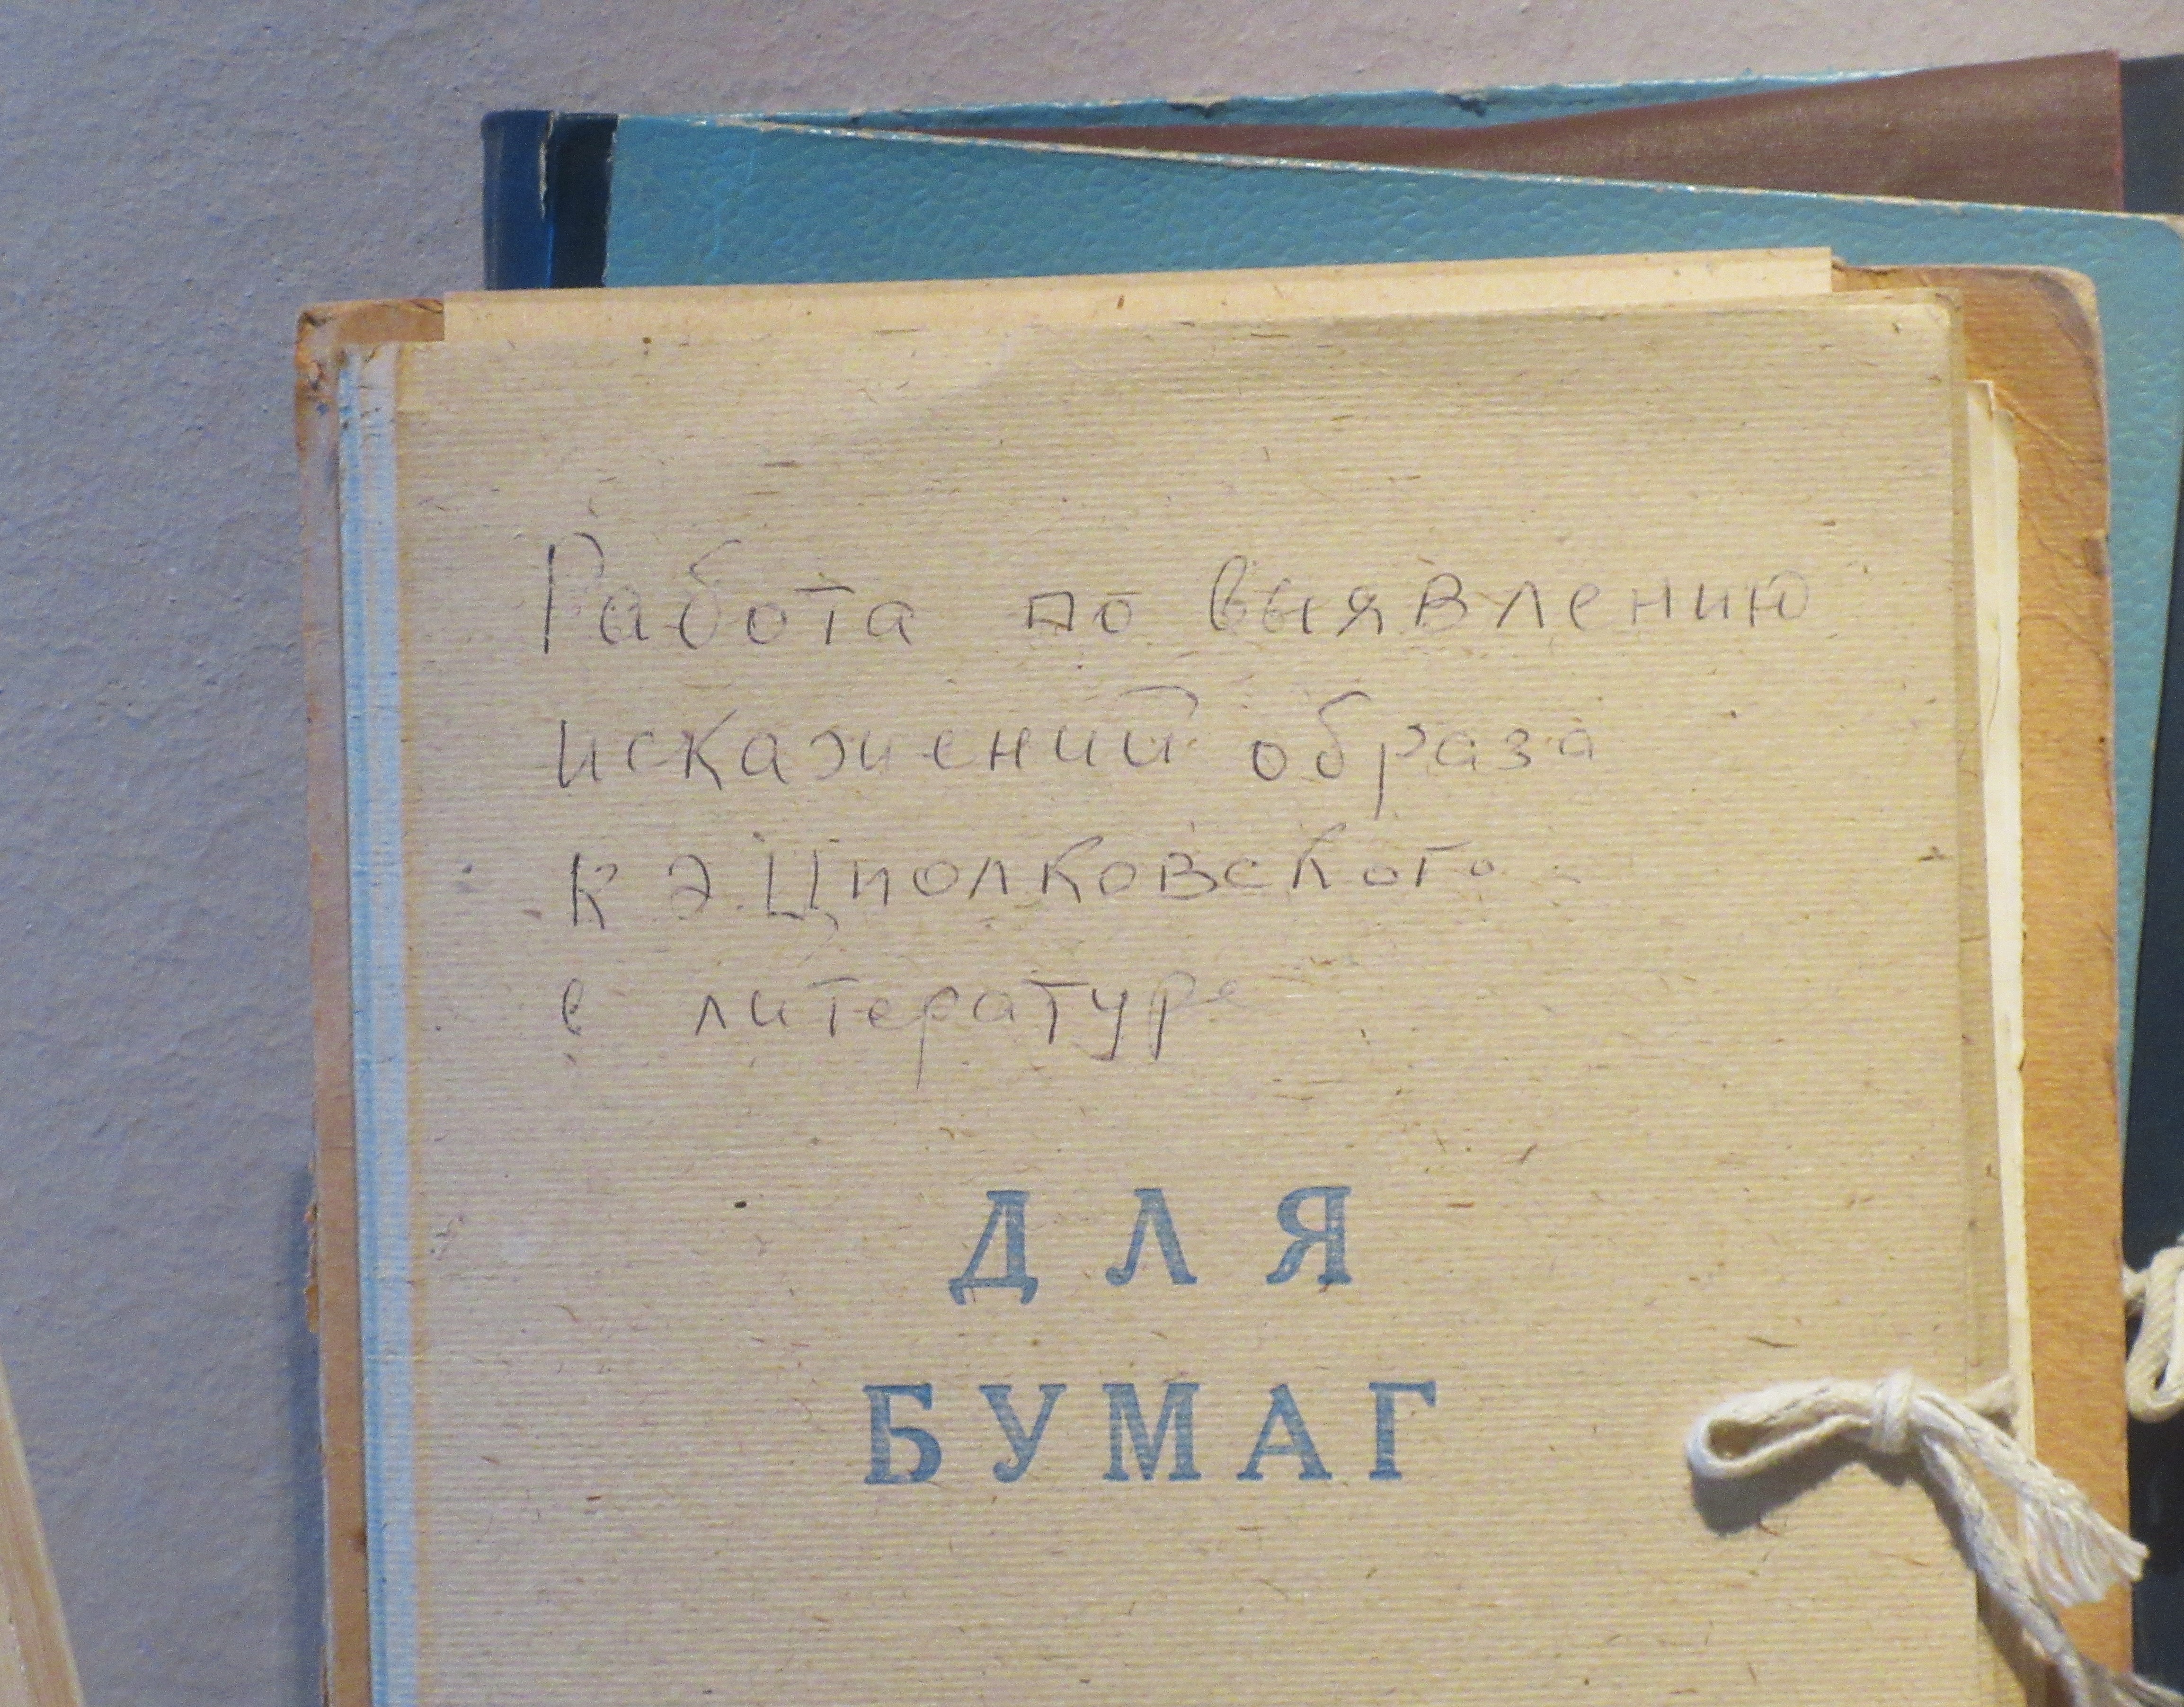 Работа по выявлению
искажений образа
К Э. Циолковского
в литературе
ДЛЯ
БУМАГ